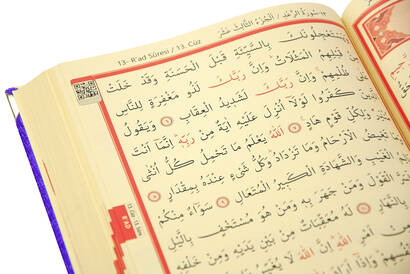 13- R'ad Sûresi / 13. Cüz
١٣- سُورَةُ الرَّعْدِ / اَلْجُزْءُ الثَّالِثُ عَشَرَ
بِالسَّيِّئَةِ قَبْلَ الْحَسَنَةِ وَقَدْ خَلَتْ
قَبْلِهِمُ الْمَثُلَاتُ وَاِنَّ رَبَّكَ لَذُو مَغْفِرَةٍ لِلنَّاسِ
ظُلْمِهِمْ وَاِنَّ رَبَّكَ لَشَدِيدُ الْعِقَابِ ٦ وَيَقُولُ
كَفَرُوا لَوْلَا اُنْزِلَ عَلَيْهِ اٰيَةٌ مِنْ رَبِّهِ اِنَّمَا اَنْتَ
وَلِكُلِّ قَوْمٍ هَادٍ ٧ اَللّٰهُ يَعْلَمُ مَا تَحْمِلُ كُلُّ اُنْثٰى
تَغِيضُ الْاَرْحَامُ وَمَا تَزْدَادُ وَكُلُّ شَيْءٍ عِنْدَهُ بِمِقْدَارٍ ٨
الْغَيْبِ وَالشَّهَادَةِ الْكَبِيرُ الْمُتَعَالِ ٩ سَوَاءٌ مِنْكُمْ
الْقَوْلَ وَمَنْ جَهَرَ بِهِ وَمَنْ هُوَ مُسْتَخْفٍ بِالَّيْلِ
بِالنَّهَارِ ١٠ لَهُ مُعَقِّبَاتٌ مِنْ بَيْنِ يَدَيْهِ وَمِنْ خَلْفِهِ
اَمْرِ اللّٰهِ اِنَّ اللّٰهَ لَا